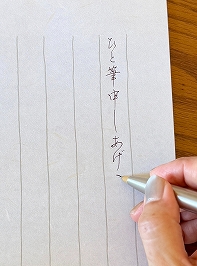 ひと筆申しあげ